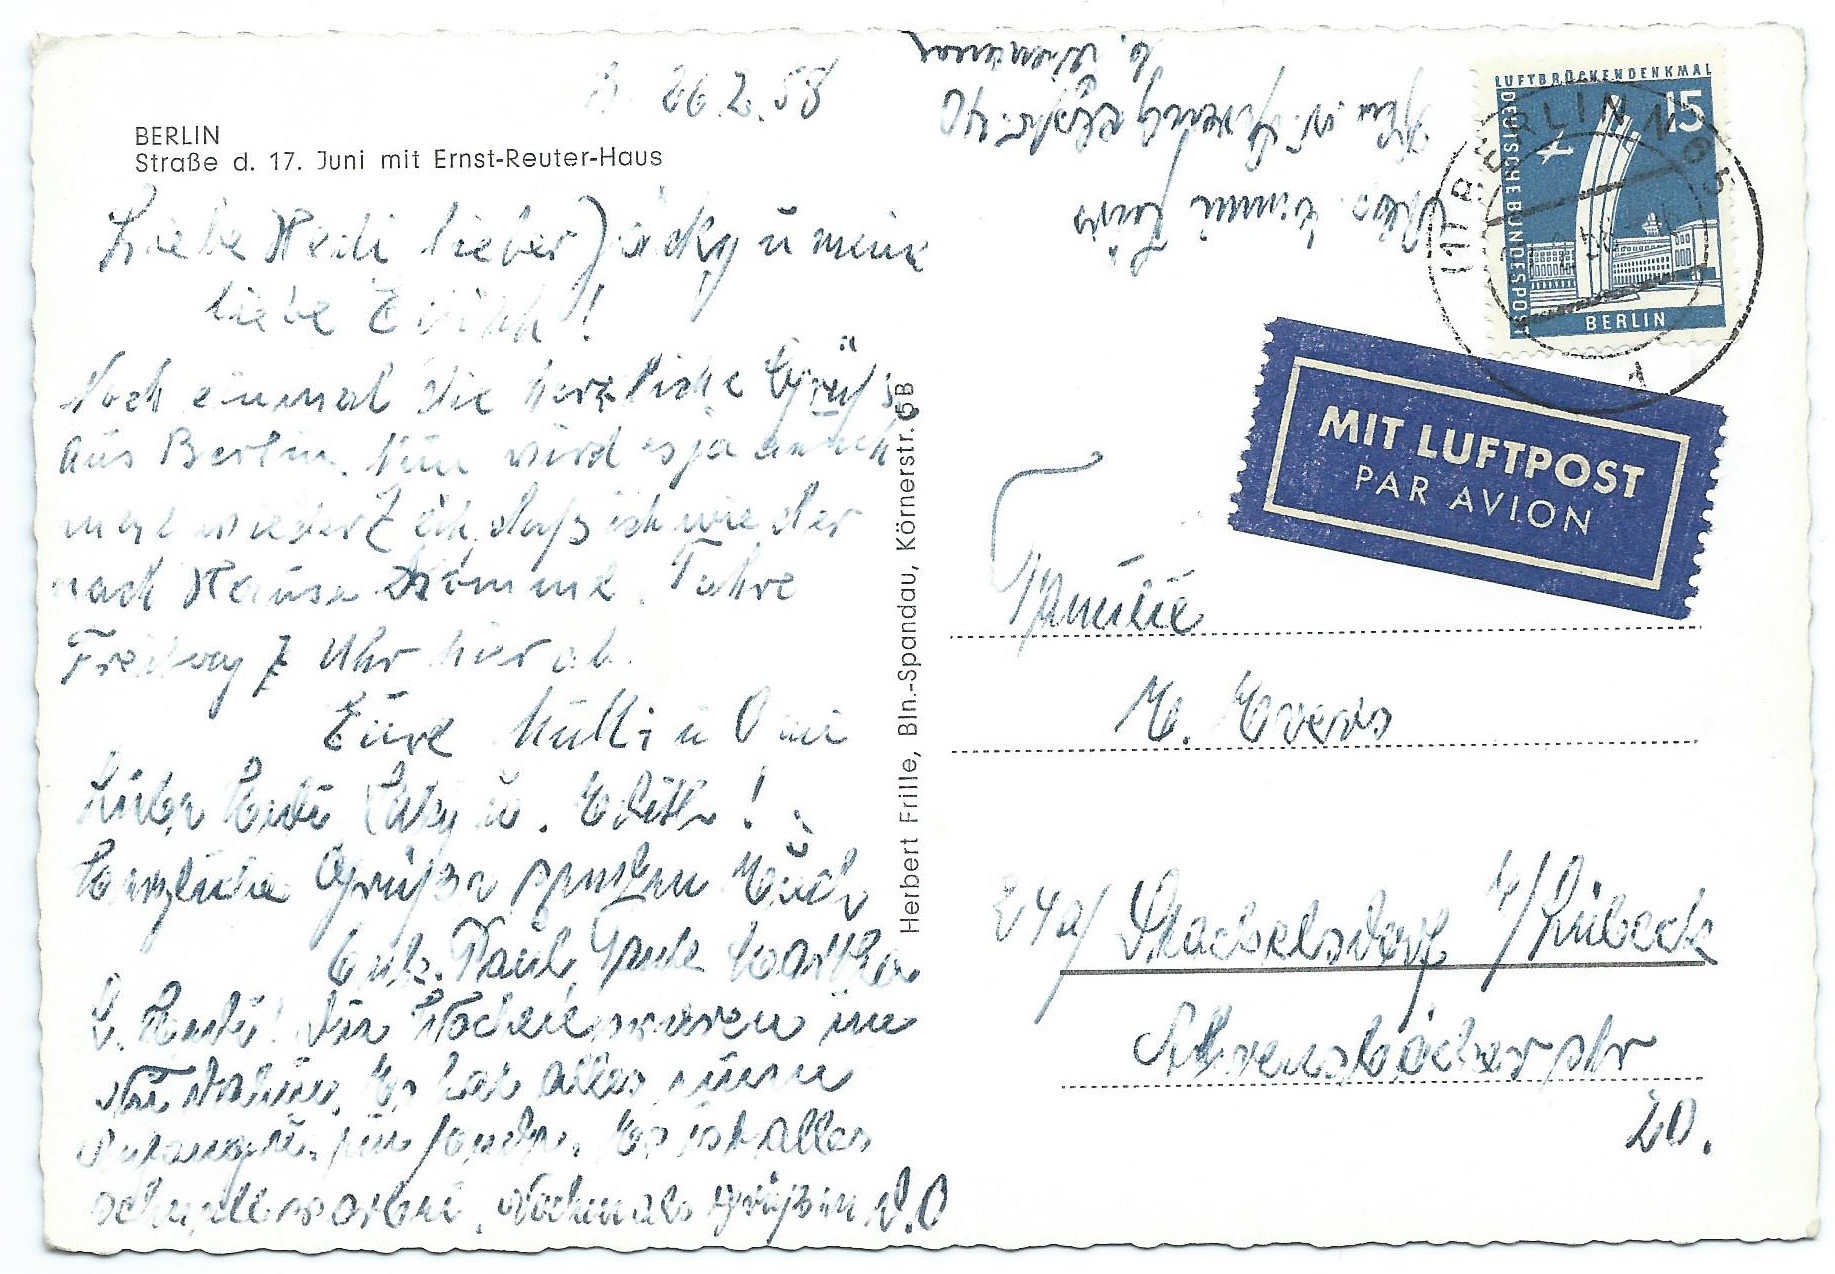 B. 26.2.58
BERLIN
Straße d. 17. Juni mit Ernst-Reuter-Haus
Liebe Hedi lieber Jäcky u meine
liebe Edith!
Noch einmal die herzliche Grüße
aus Berlin. Nun wird es ja auch
mal wieder Zeit, daß ich wieder
nach Hause komme. Fahre
Freitag 7 Uhr hier ab.
Eure Mutti u Omi
Liebe Hedi, Jäky u. Edith!
Herzliche Grüße senden Euch
Paul, Tante Martha
L. Hedi! Die Wochen waren im
Nu dahin. Es hat alles seinen
Anfang u. sein Ende. Es ist alles
schnell vorbei. Nochmals Grüßen D.O
Herbert Frille, Bln.-Spandau, Körnerstr. 5B
Abs. Emmi
LUFTBRÜCKENDENKMAL
15
DEUTSCHE BUNDESPOST
BERLIN
BERLIN N 65
MIT LUFTPOST
PAR AVION
Familie
H. Evers
24a/ Stockelsdorf b/Lübeck
Ahrensböckerstr
20.